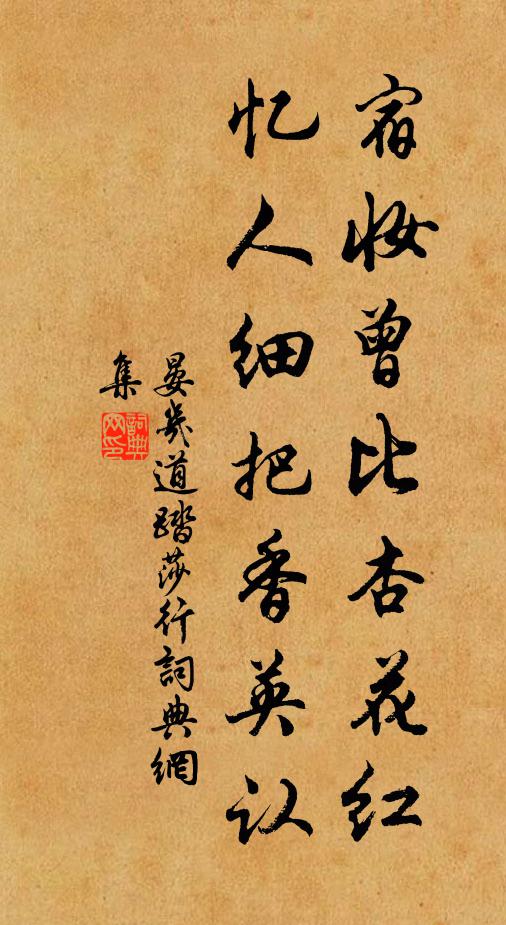 宿妆曾比杏花红
忆人细把香英认
晏几道踏莎行詞典網
集
詞典網印